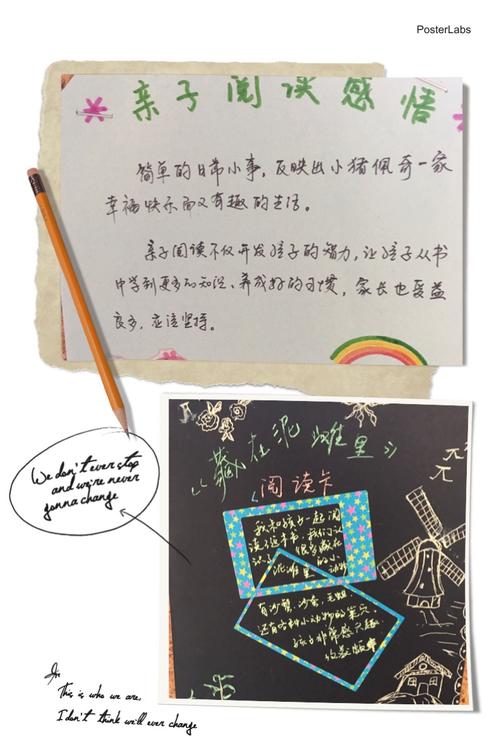 PosterLabs
亲子阅读感悟
简单的日常小事，反映出小猪佩奇一家
幸福快乐而又有趣的生活。
亲子阅读不仅开发孩子的智力，让孩子从书
中学到更多的知识、养成好的习惯，家长也受益
良多，应该坚持。
《藏在泥滩里》
阅读卡
我和孩子一起阅
读了这本书，我们
认
很多藏在
泥滩里的小
动物
有沙蟹、沙蚕、
还有各种小动物的巢穴，
孩子非常感兴趣
We don't ever stop
and we're never
gonna change
This is who we are,
I don't think will ever change